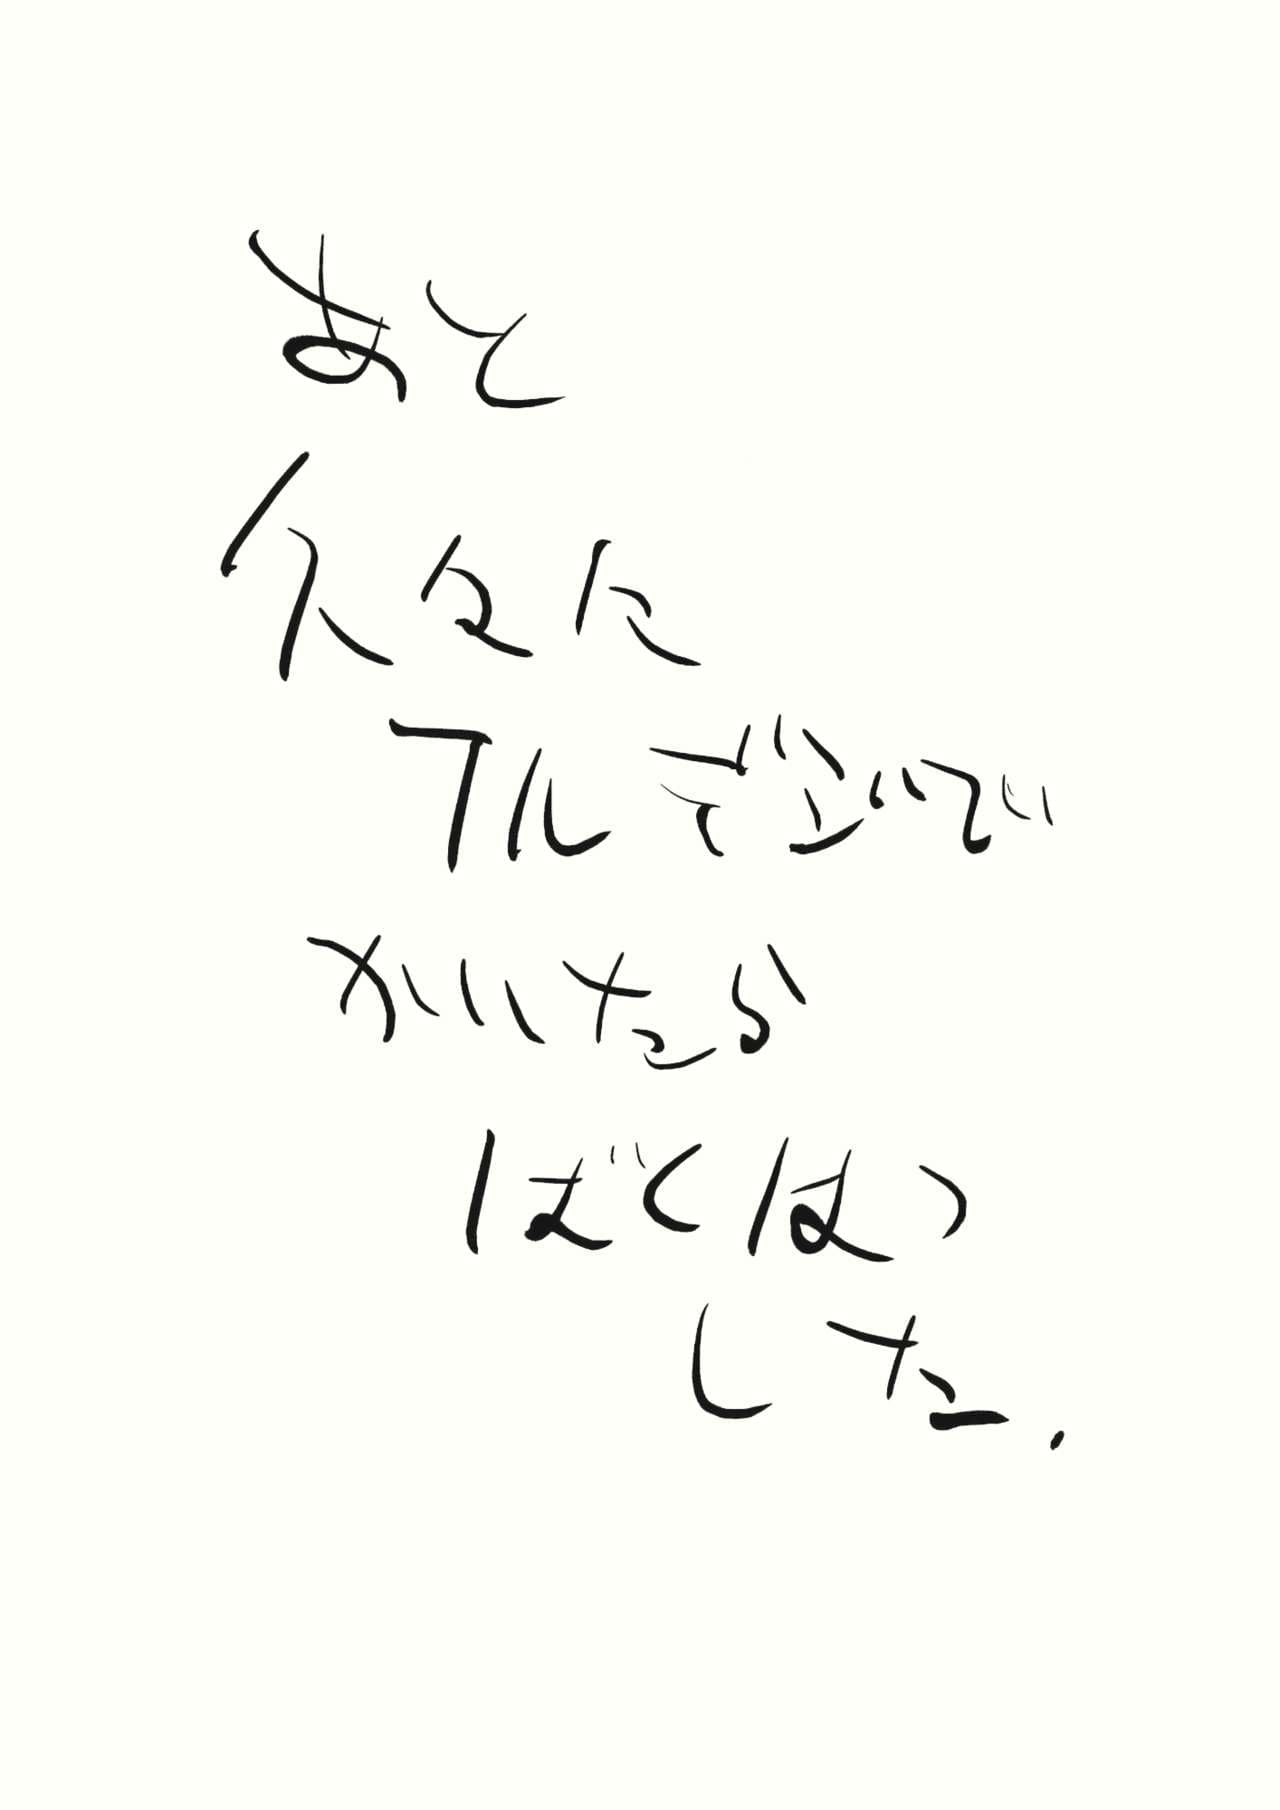 あと
久々に
フルで泣いて
かいたら
ばくはつ
した.